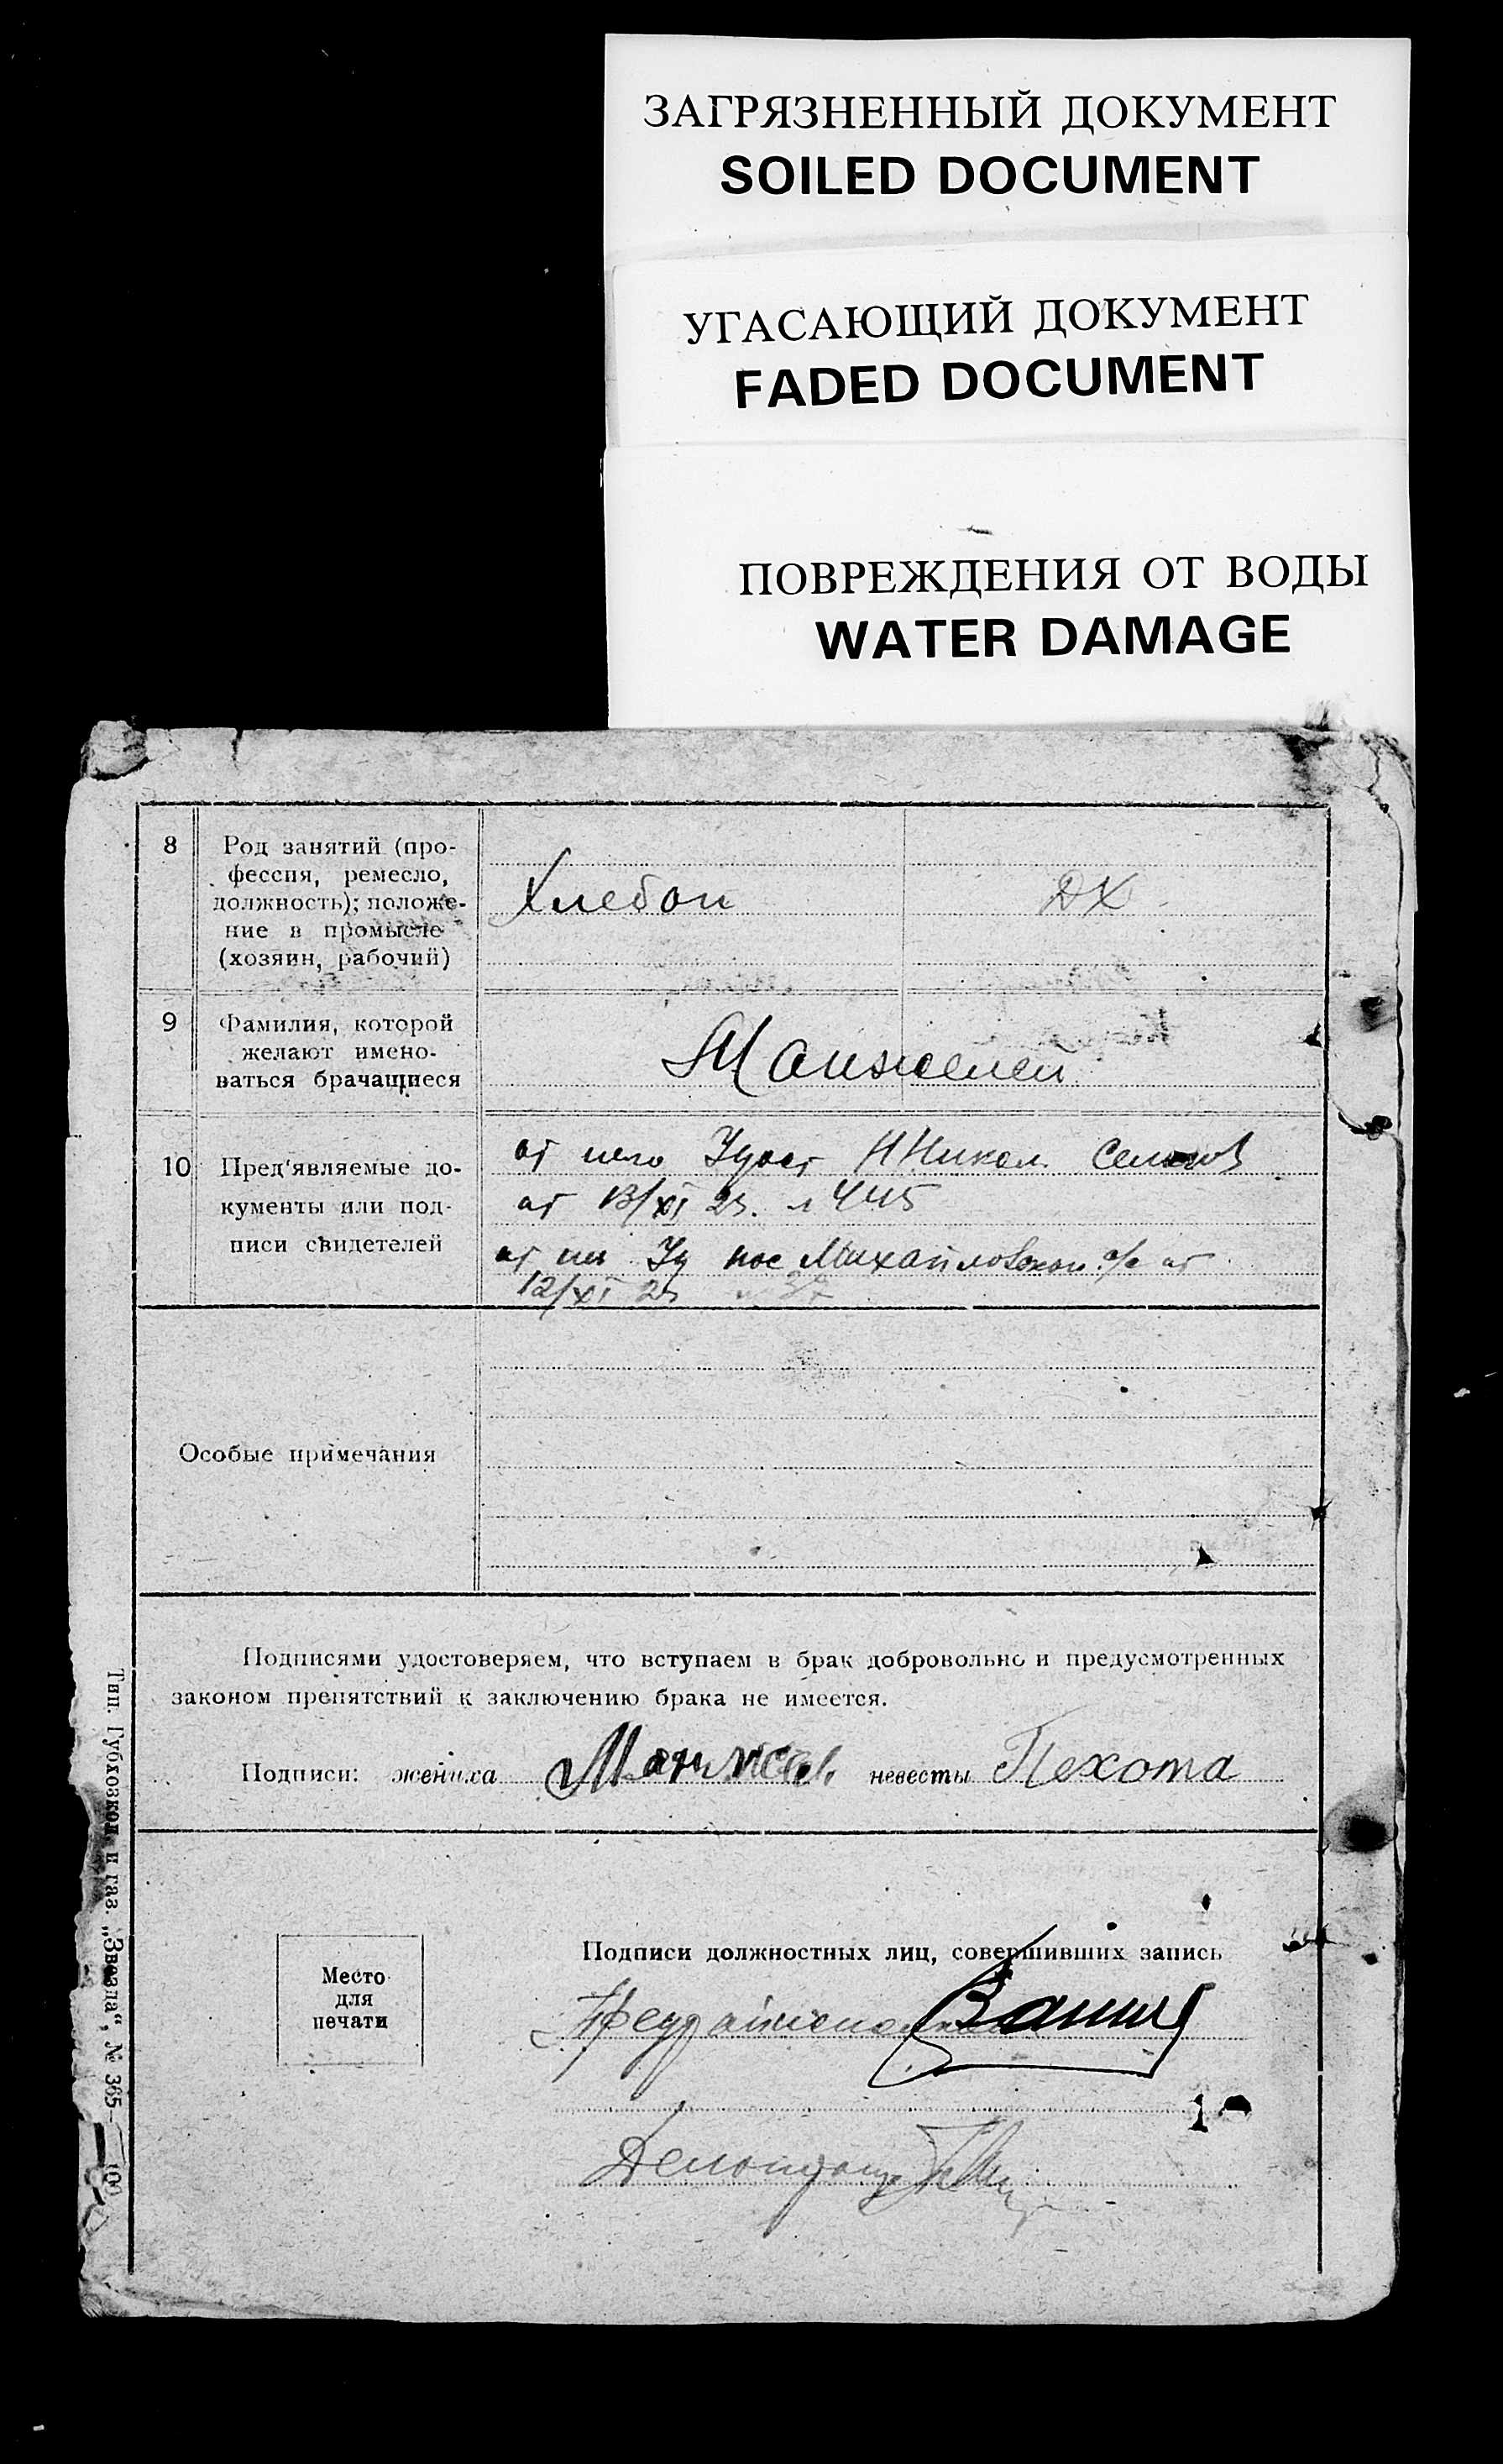 ЗАГРЯЗНЕННЫЙ ДОКУМЕНТ
SOILED DOCUMENT
УГАСАЮЩИЙ ДОКУМЕНТ
FADED DOCUMENT
ПОВРЕЖДЕНИЯ ОТ ВОДЫ
WATER DAMAGE
8
Род занятий (про-
фессия, ремесло,
должность); положе-
ние в промысле
(хозяин, рабочий)
Хлебоп
ДХ
9
Фамилия, которой
желают имено-
ваться брачащиеся
Манжелей
10
Пред'являемые до-
кументы или под-
писи свидетелей
от него Удост ННикол.
от 13/XI 25. № 445
от
Уд
Михайловской с/с от
12/XI 25 № 37
Особые примечания
Подписями удостоверяем, что вступаем в брак добровольно и предусмотренных
законом препятствий к заключению брака не имеется.
Подписи: жениха
невесты Пехота
Место
для
печати
Подписи должностных лиц, совершивших запись
Тип. Губхозкол. и газ. „Звезда“, № 365—